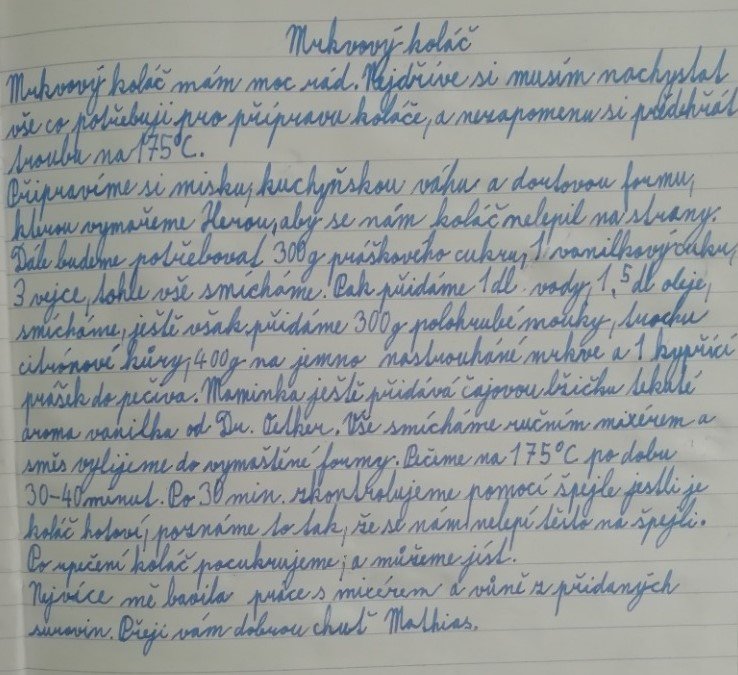 Mrkvový koláč
Mrkvový koláč mám moc rád. Nejdříve si musím nachystat
vše co potřebuji pro přípravu koláče, a nezapomenu si předehřát
troubu na 175°C.
Připravíme si misku, kuchyňskou váhu a dortovou formu,
kterou vymažeme Herou, aby se nám koláč nelepil na strany.
Dále budeme potřebovat 300g práškového cukru, 1 vanilkový cukr,
3 vejce, tohle vše smícháme. Pak přidáme 1dl vody, 1,5dl oleje,
smícháme, ještě však přidáme 300g polohrubé mouky, trochu
citrónové kůry, 400g na jemno nastrouháné mrkve a 1 kypřící
prášek do pečiva. Maminka ještě přidává čajovou lžičku tekuté
aroma vanilka od Dr. Oetker. Vše smícháme ručním mixérem a
směs vylijeme do vymaštěné formy. Pečeme na 175°C po dobu
30-40 minut. Po 30 min. zkontrolujeme pomocí špejle jestli je
koláč hotoví, poznáme to tak, že se nám nelepí těsto na špejli.
Po upečení koláč pocukrujeme, a můžeme jíst.
Nejvíce mě bavila práce s micérem a vůně z přidaných
surovin. Přeji vám dobrou chuť Mathias.